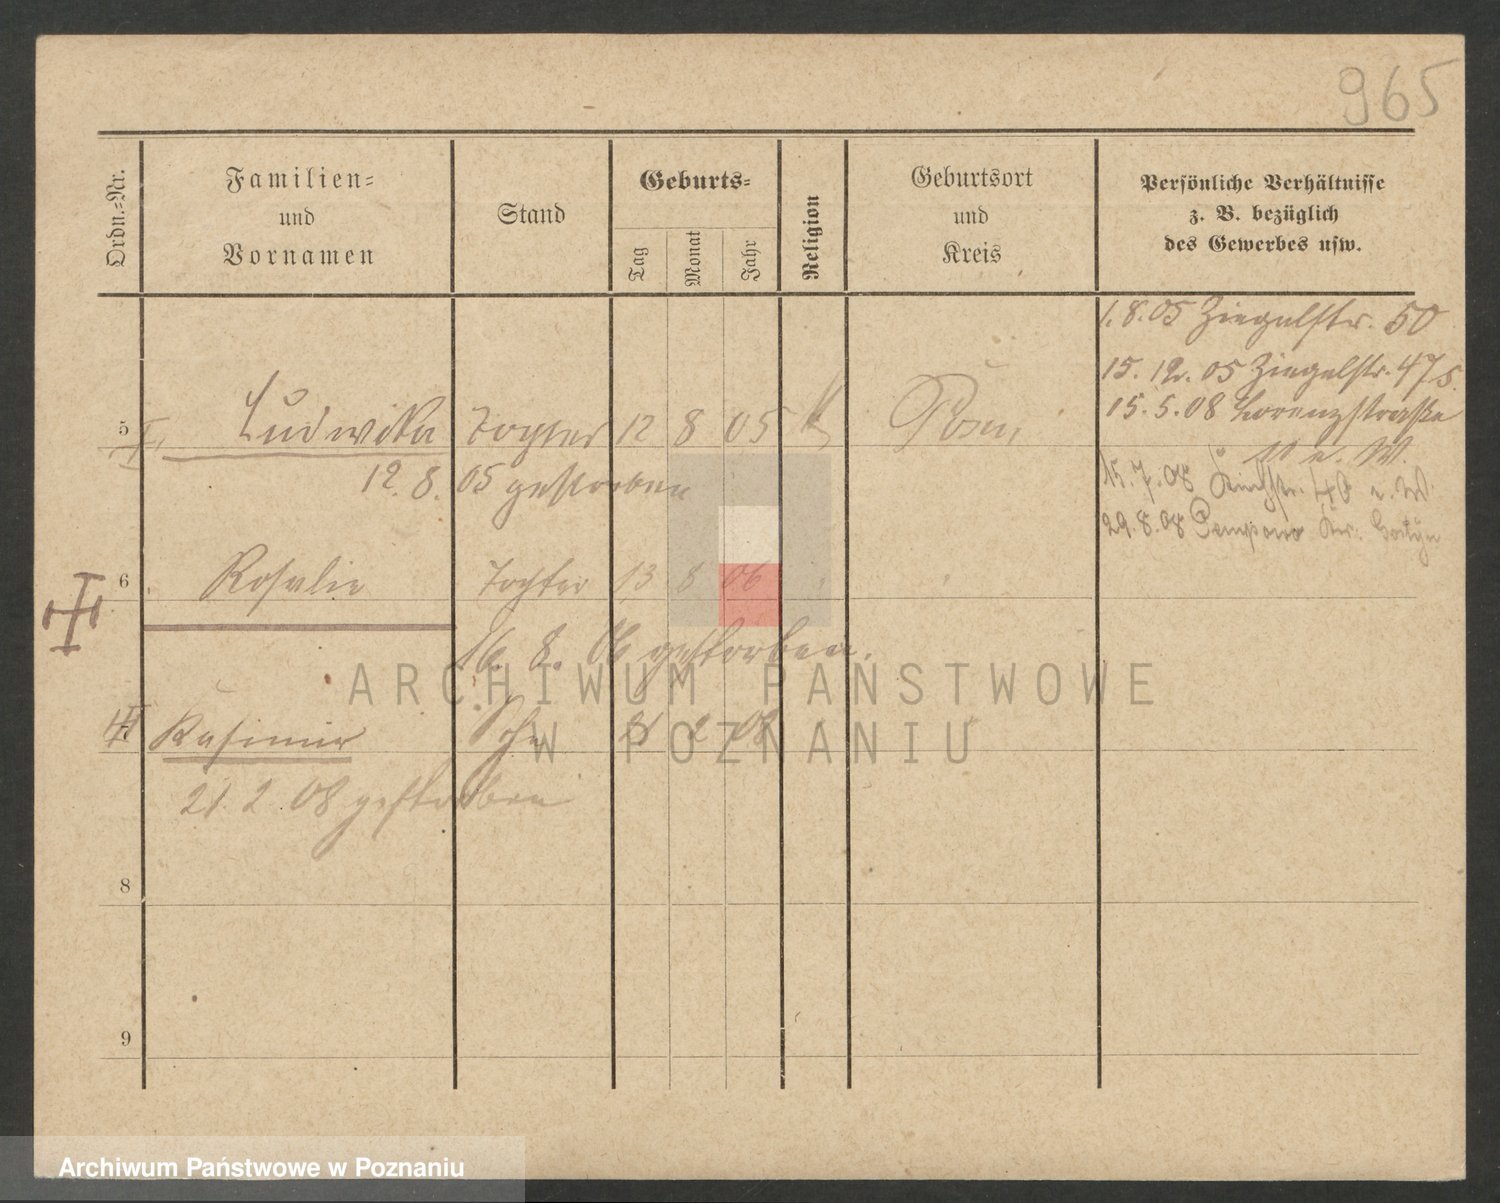 965
Ordn.-Nr.
Familien-
und
Vornamen
Stand
Geburts-
Tag
Monat
Jahr
Religion
Geburtsort
und
Kreis
Persönliche Verhältnisse
z. B. bezüglich
des Gewerbes usw.
1.8.05 Ziegelstr. 50
15.12.05 Ziegelstr. 47
15.5.08 Lorenzstraße
5 Ludwika Tochter 12 8 05 k Posen
12.8.05 gestorben
15.7.08 40
29.8.08 Pempowo Kr. Gostyn
6 Rosalie Tochter 13 8 06
16.8.06 gestorben.
7 Kasimir Sohn 21 2 08
21.2.08 gestorben
8
9
ARCHIWUM PAŃSTWOWE
W POZNANIU
Archiwum Państwowe w Poznaniu